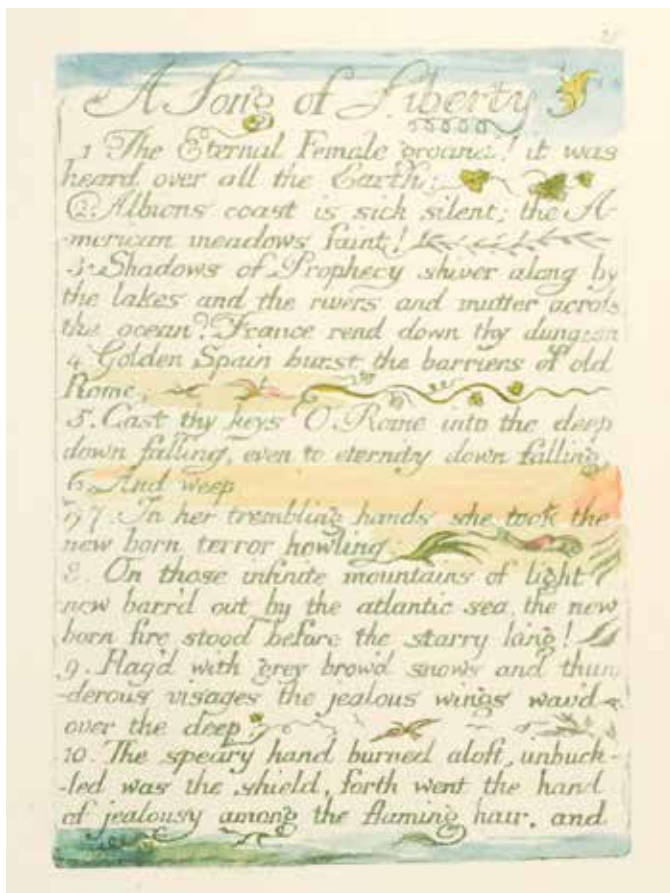 25
A Song of Liberty
1 The Eternal Female groand! it was
heard over all the Earth:
2. Albions coast is sick silent; the A-
-merican meadows faint!
3. Shadows of Prophecy shiver along by
the lakes and the rivers and mutter across
the ocean? France rend down thy dungeon
4. Golden Spain burst the barriers of old
Rome;
5. Cast thy keys O Rome into the deep
down falling, even to eternity down falling,
6. And weep
7. In her trembling hands she took the
new born terror howling
8. On those infinite mountains of light
now barr'd out by the atlantic sea, the new
born fire stood before the starry king!
9. Flag'd with grey brow'd snows and thun
-derous visages the jealous wings wav'd
over the deep.
10. The speary hand burned aloft, unbuck-
-led was the shield, forth went the hand
of jealousy among the flaming hair, and